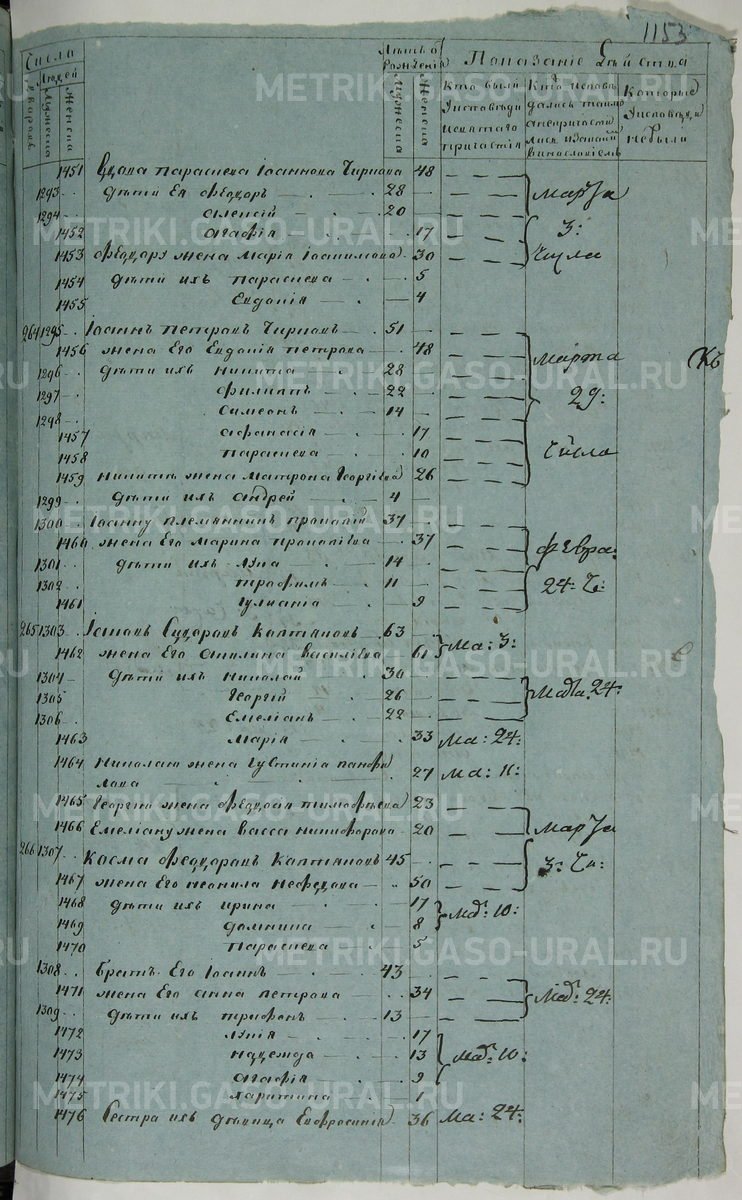 1153
Числа
Людей
Дворовъ
Мужеска
Женска
Лѣтъ отъ рожденія
Мужеска
Женска
Показаніе Дѣйства
Кто были
Исповѣди
исвятаго
причастія
Кто исповѣ
дались токмо
анепричасти
лись
Которые
Исповѣди
небыли
1451 Вдова Параскева Іоаннова Чиркова 48
1293 дѣти Ея Ѳеодоръ 28
1294 Алексій 20
1452 Агафія 17
1453 Ѳеодору жена Марія Іоакимова 30
Марта
3:
Числа
1454 дѣти ихъ Параскева 5
1455 Евдокія 4
264 1295 Іоаннъ Петровъ Чирковъ 51
1456 жена Его Евдокія Петрова 48
1296 дѣти ихъ Никита 28
1297 Филиппъ 22
1298 Симеонъ 14
1457 Афанасія 17
1458 Параскева 10
1459 Никитѣ жена Матрона Георгіева 26
Марта
29:
Числа
Къ
1299 дѣти ихъ Андрей 4
1300 Іоанну племянникъ Прокопій 37
1460 жена Его Марина Прокопіева 37
1301 дѣти ихъ Лука 14
1302 Трофимъ 11
1461 Іуліанія 9
Февра:
24: Ч:
265 1303 Сидоровъ Колтяковъ 63
1462 жена Его Акилина Василіева 61
Ма: 3:
1304 дѣти ихъ Николай 30
1305 Георгій 26
1306 Емеліанъ 22
Марта: 24:
1463 Марія 33 Ма: 24:
1464 Николаю жена Іустинія Панфи
лова 27 Ма: 11:
1465 Георгію жена Ѳеодосія Тимоѳеева 23
1466 Емеліану жена Васса Никифорова 20
Марта
266 1307 Косма Ѳеодоровъ Колтяковъ 45
1467 жена Его Неонила Меѳодова 50
3: Чи:
1468 дѣти ихъ Ирина 17
1469 Домнина 8
Мар: 10:
1470 Параскева 5
1308 Братъ Его Іоаннъ 43
1471 жена Его Анна Петрова 34
1309 дѣти ихъ Трифонъ 13
Мар: 24:
1472 Лукія 17
1473 Надежда 13
1474 Агафія 9
Мар: 10:
1475 Харитина 1
1476 Сестра ихъ дѣвица Евфросинія 36 Ма: 24:
METRIKI.GASO-URAL.RU